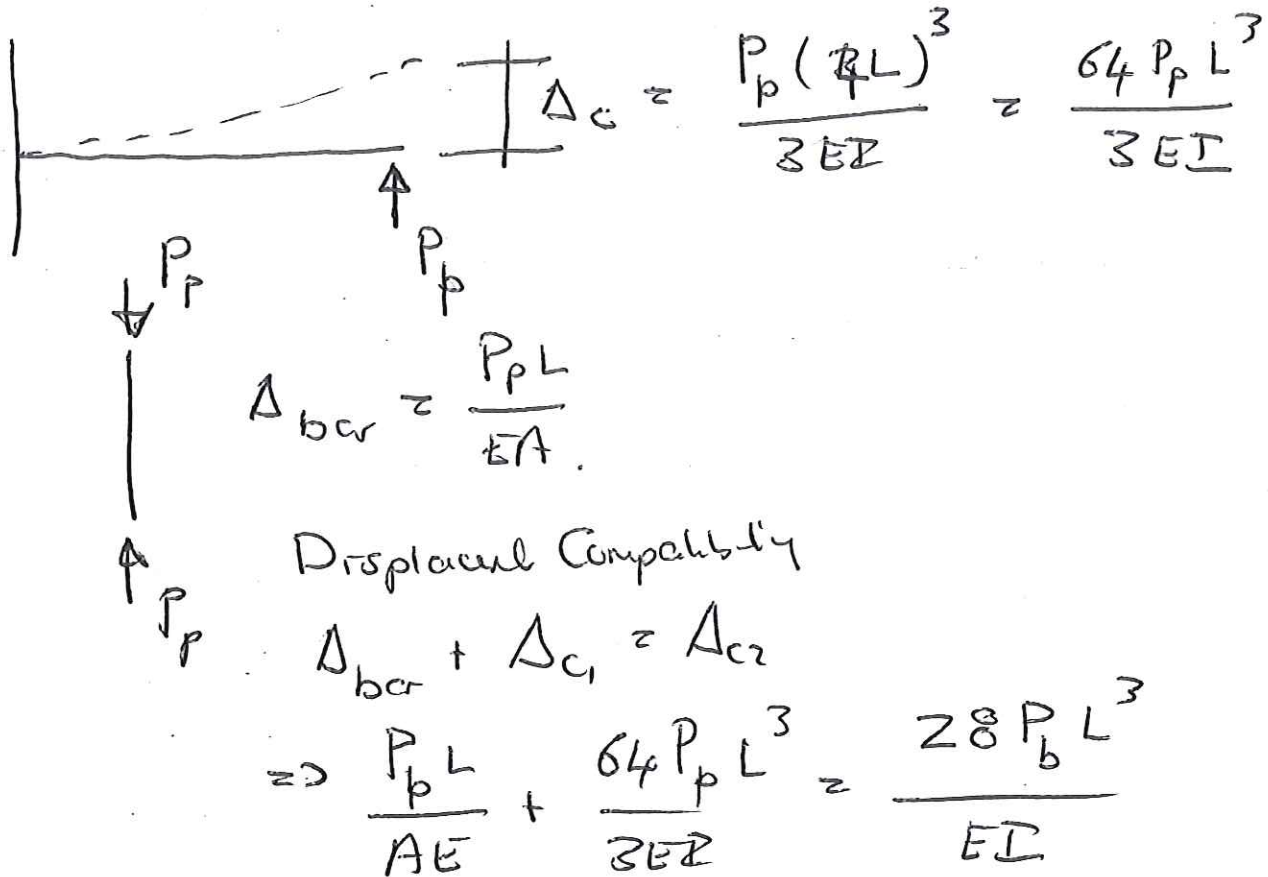 Δ_c = P_p (4L)^3 / 3EI = 64 P_p L^3 / 3EI
P_p
P_p
Δ_bar = P_p L / EA.
P_p
Displacement Compatibility
Δ_bar + Δ_c1 = Δ_c2
=> P_p L / AE + 64 P_p L^3 / 3EI = 28 P_b L^3 / EI